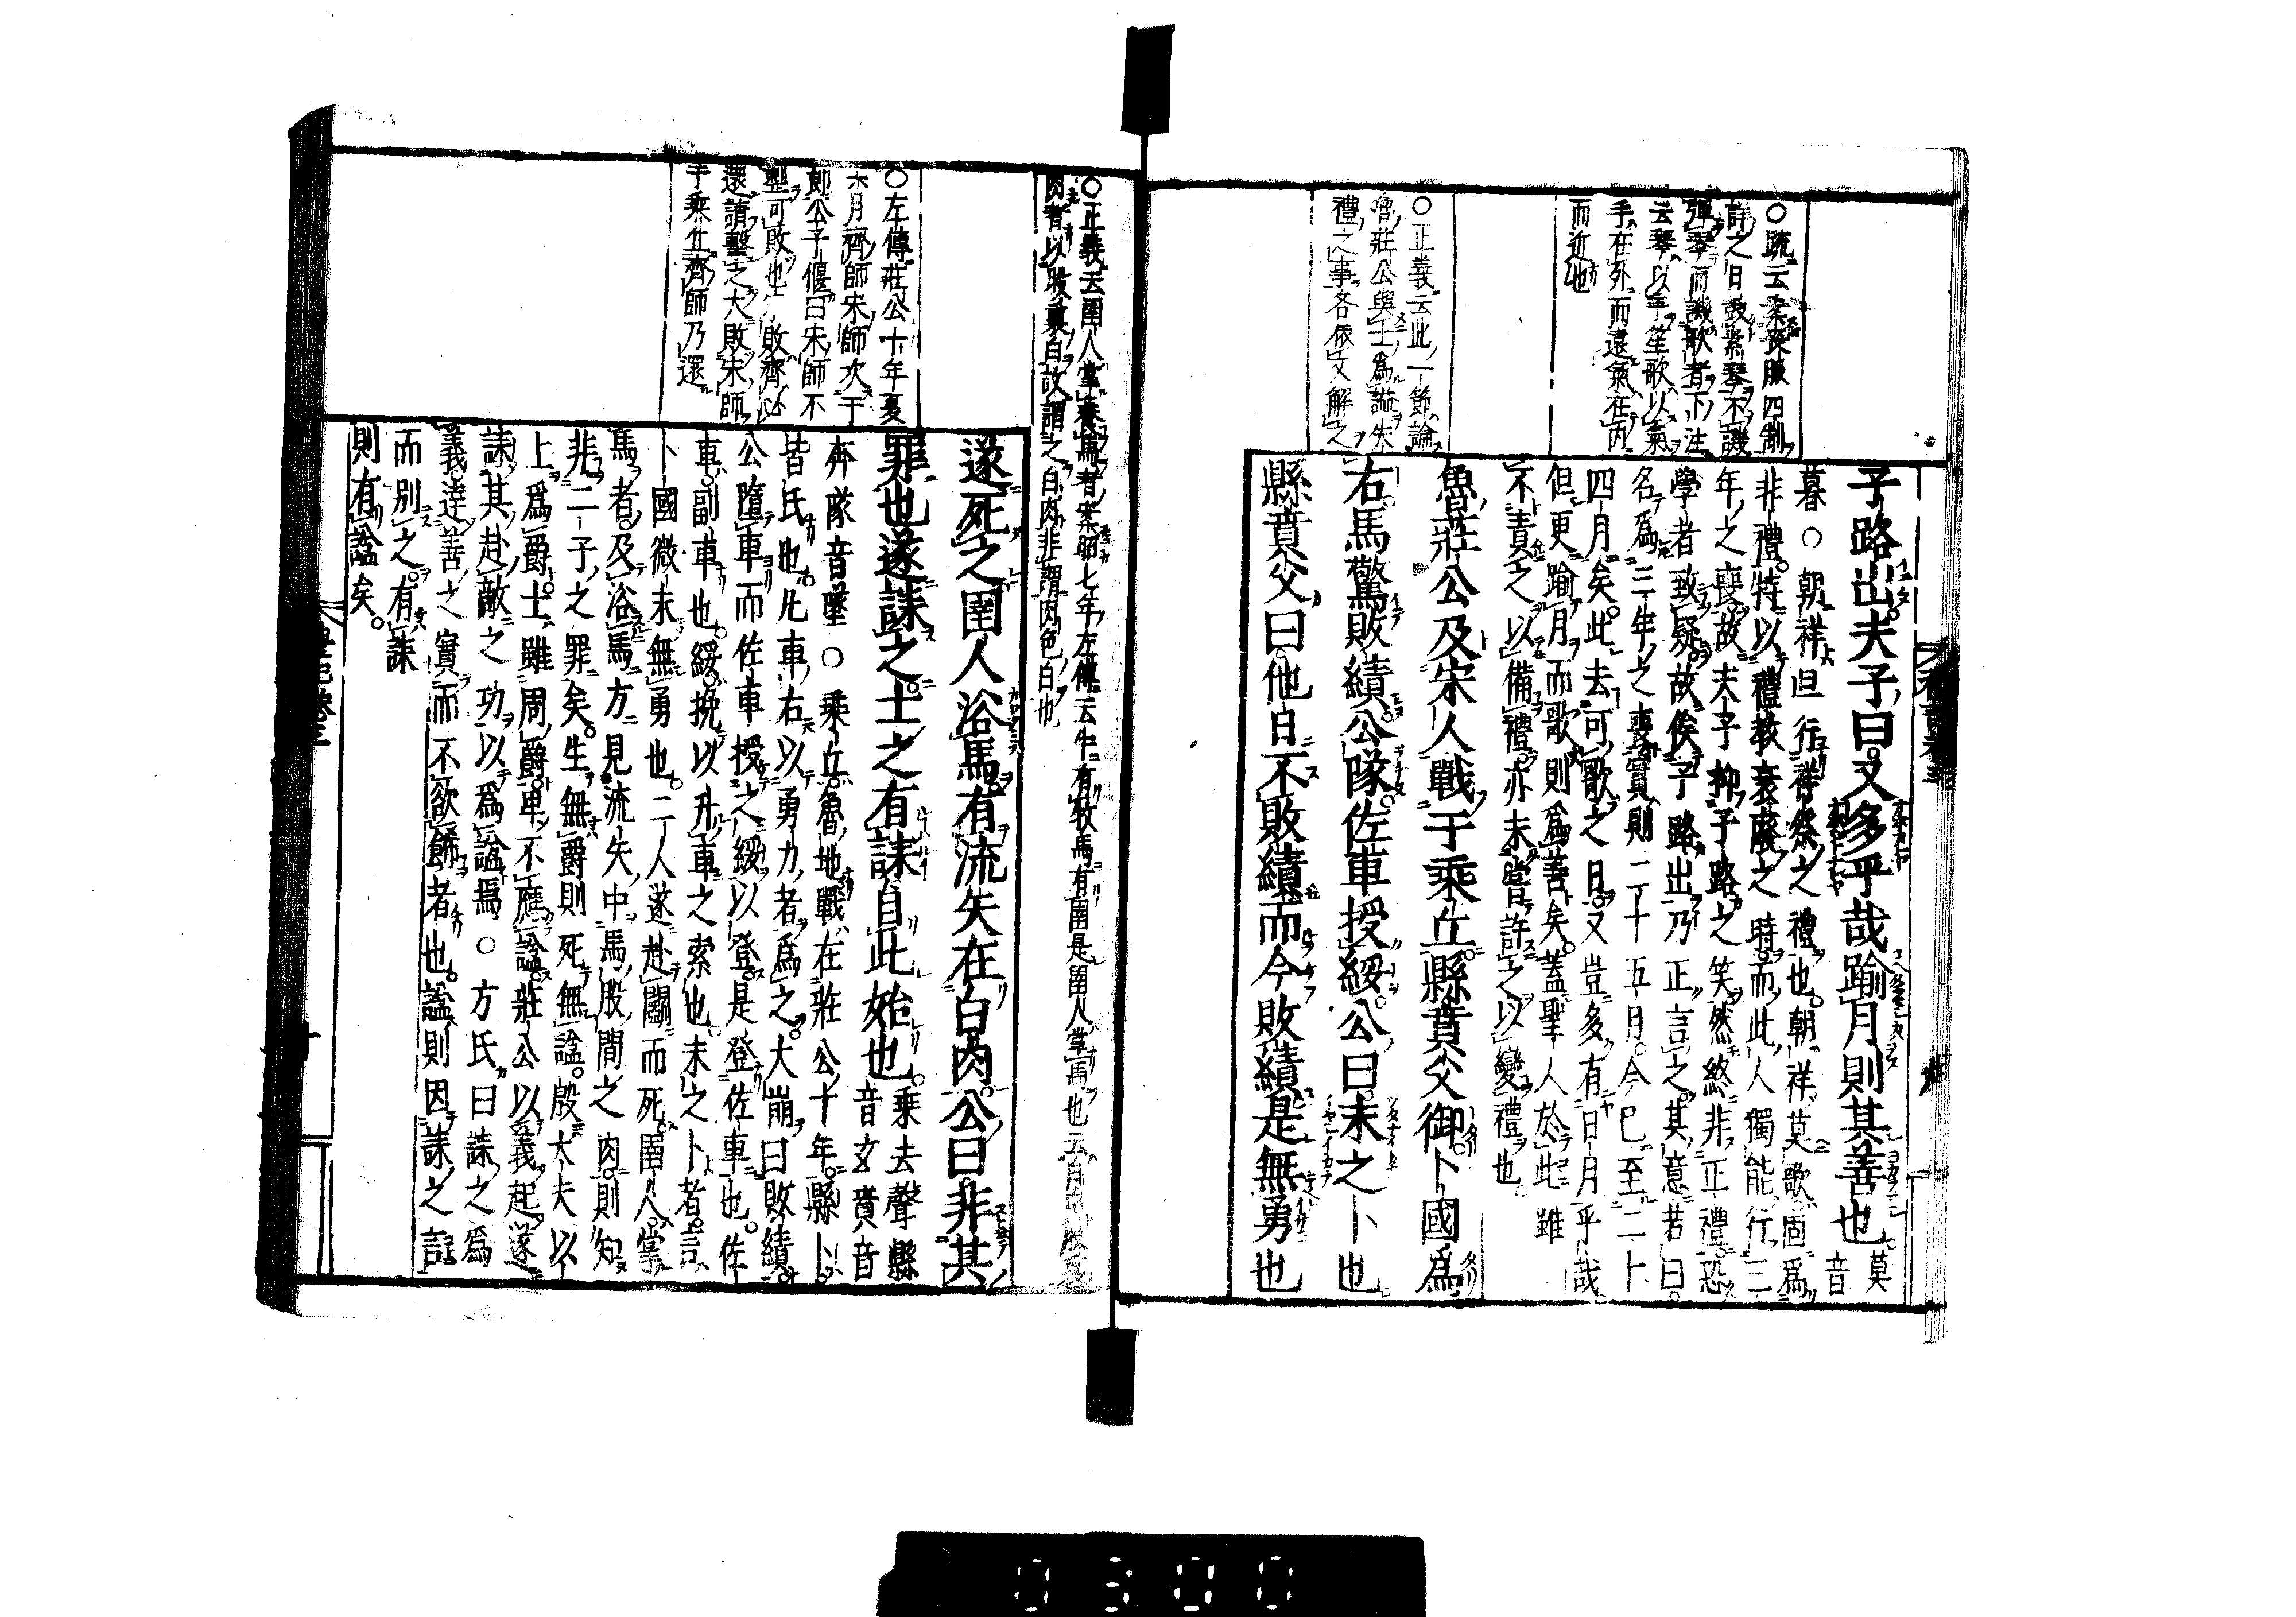 ○疏云案喪服四制
祥之日鼓素琴不譏
彈琴而譏歌者下注
云琴以手笙歌以氣
手在外而遠氣在内
而近也
○正義云此一節論
魯莊公與士爲謚失
禮之事各依文解之
子路出夫子曰又多乎哉踰月則其善也
莫
音
暮○朝祥但行祥祭之禮也朝祥莫歌固爲
非禮特以禮教衰廢之時而此人獨能行三
年之喪故夫子抑子路之笑然終非正禮恐
學者致疑故俟子路出乃正言之其意若曰
名爲三年之喪實則二十五月今已至二十
四月矣此去可歌之日又豈多有日月乎哉
但更踰月而歌則爲善矣蓋聖人於此雖
不責之以備禮亦未嘗許之以變禮也
魯莊公及宋人戰于乘丘縣賁父御卜國爲
右馬驚敗績公隊佐車授綏公曰末之卜也
縣賁父曰他日不敗績而今敗績是無勇也
○正義云圉人掌養馬者案昭七年左傳云牛有牧馬有圉是圉人掌馬也云白肉股裏
肉者以股裏白故謂之白肉非謂肉色白也
○左傳莊公十年夏
六月齊師宋師次于
郎公子偃曰宋師不
整可敗也宋敗齊必
還請擊之大敗宋師
于乘丘齊師乃還
遂死之圉人浴馬有流矢在白肉公曰非其
罪也遂誅之士之有誄自此始也
乘去聲縣
音玄賁音
奔隊音墜○乘丘魯地戰在莊公十年縣卜
皆氏也凡車右以勇力者爲之大崩曰敗績
公墮車而佐車授之綏以登是登佐車也佐
車副車也綏挽以升車之索也末之卜者言
卜國微末無勇也二人遂赴鬭而死圉人掌
馬者及浴馬方見流矢中馬股間之肉則知
非二子之罪矣生無爵則死無謚殷大夫以
上爲爵士雖周爵卑不應謚莊公以義起遂
誄其赴敵之功以爲謚焉○方氏曰誄之爲
義達善之實而不欲飾者也謚則因誄之言
而別之有誄
則有謚矣